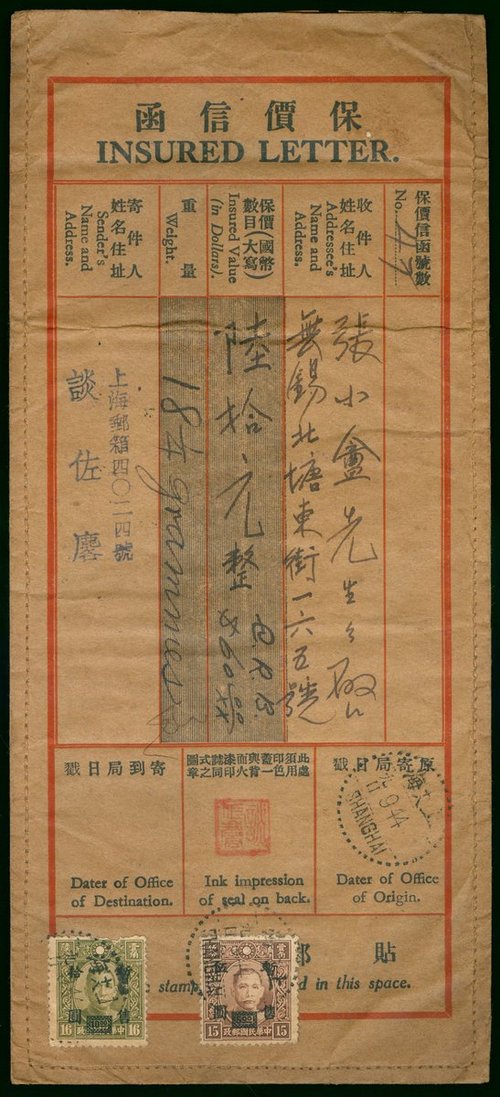 保價信函
INSURED LETTER.
保價信函號數
No. 47
收件人
姓名住址
Addressee's
Name and
Address.
張小盦先生
無錫北塘東街一六五號
保價(國幣
數目(大寫
Insured Value
(in Dollars).
陸拾元整
$60.00
重量
Weight.
18 grammes
寄件人
姓名住址
Sender's
Name and
Address.
上海郵箱四〇二四號
談佐麐
原寄局日戳
Dater of Office
of Origin.
上海
9 44
SHANGHAI
此處須用
Ink impression
of seal on back.
寄到局日戳
Dater of Office
of Destination.
貼郵
stamp in this space.
暫售
拾圓
16 中華民國郵政 16
暫售
圓
15 中華民國郵政 15